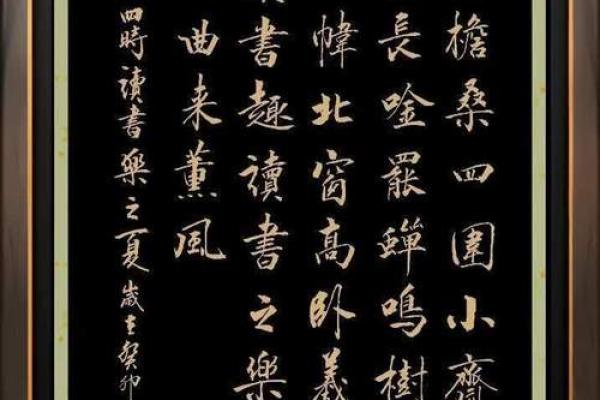 檐桑四圍小齋
長唫罷蟬鳴樹
幃北窗高卧羲
書趣讀書之樂
曲来薰風
四時讀書樂之夏歲在癸卯